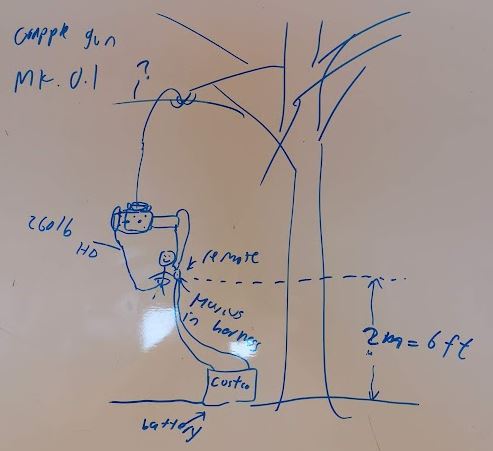 Grapple gun
MK. 0.1
?
260lb
HD
remote
Marius
in harness
2m = 6ft
Costco
battery